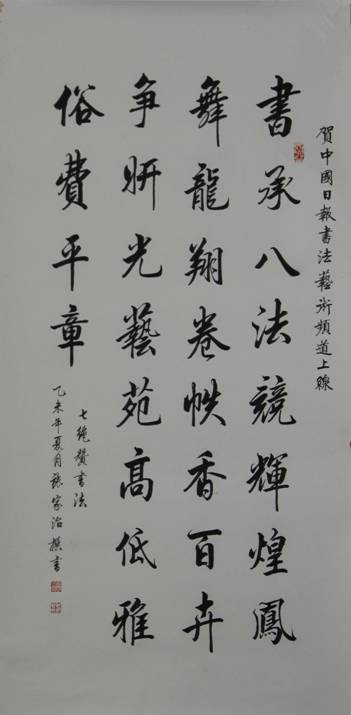 賀中國日報書法藝術頻道上線
書承八法競輝煌鳳
舞龍翔卷帙香百卉
争妍光藝苑高低雅
俗費平章
七絕贊書法
乙未年夏月張家治撰書